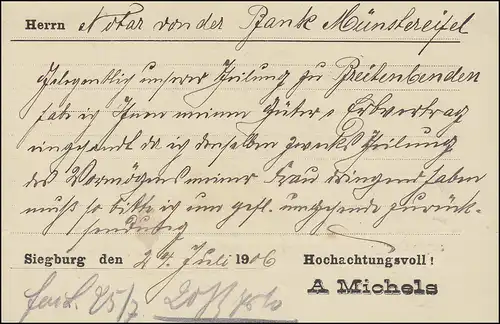 Herrn Notar von der Bank Münstereifel
Gelegentlich unserer Theilung zu Breitenbenden
habe ich Ihnen meinen Güter u Erbvertrag
eingesandt da ich denselben zwecks Theilung
des Vermögens meiner Frau dringend haben
muß so bitte ich um gefl. umgehende zurück-
sendung
Siegburg den 24. Juli 1906 Hochachtungsvoll!
A Michels
25/7